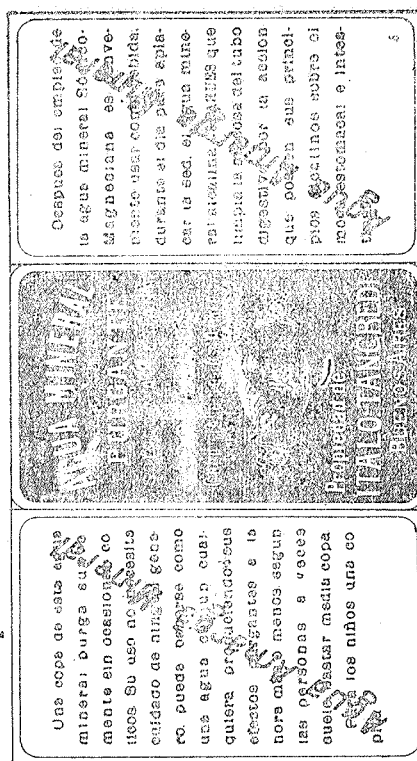 Una copa de esta agua
mineral purga suave
mente sin ocasionar có
licos Su uso no necesita
cuidado de ningun gene
ro, puede beberse como
una agua comun cual-
quiera produciendo sus
efectos purgantes a la
hora mas o menos segun
las personas a veces
suele bastar media copa
Para los niños una co
pita
AGUA MINERAL
PURGANTE
Propiedad de
ITALO
BUENOS AIRES
Despues del empleo de
la agua mineral
Magnesiana es conve-
niente usar como bebida
durante el dia para apla-
car la sed, el agua mine-
ral que
limpia la mucosa del tubo
digestivo por la accion
que poseen sus princi-
pios alcalinos sobre el
moco estomacal e intes-
tinal